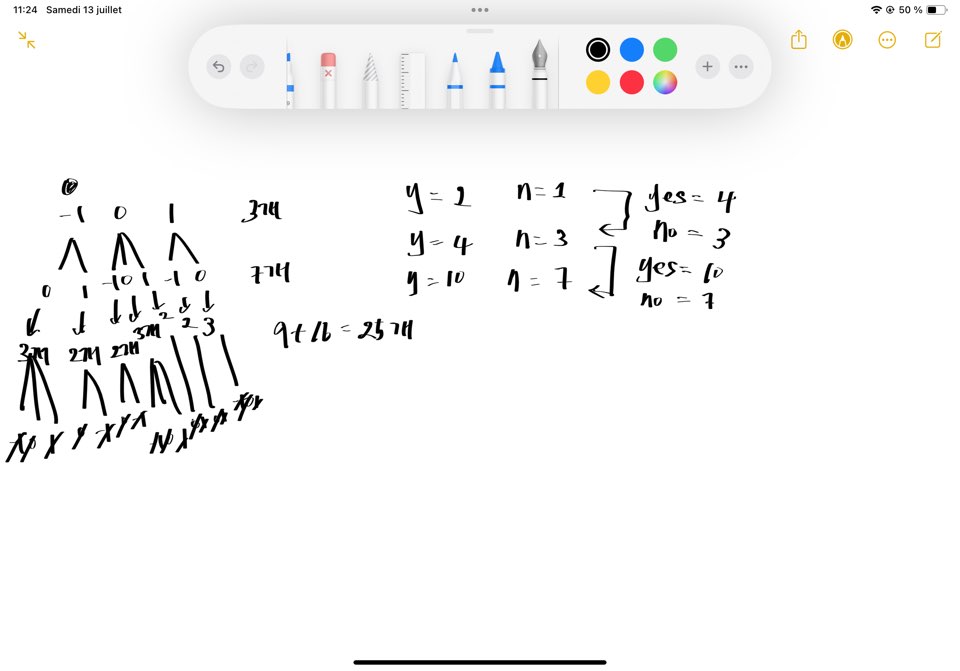 11:24 Samedi 13 juillet
50 %
-1 0 1 3개
0 1 -1 0 1 -1 0 7개
3개 2개 2개 3개 2 2 3
9+16=25개
y=2 n=1
y=4 n=3
y=10 n=7
yes=4
no=3
yes=10
no=7